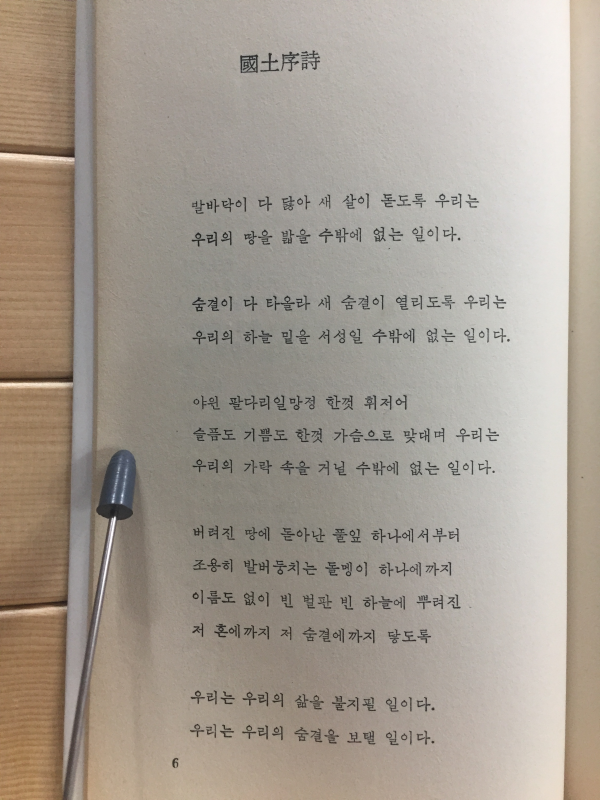 國土序詩
발바닥이 다 닳아 새 살이 돋도록 우리는
우리의 땅을 밟을 수밖에 없는 일이다.
숨결이 다 타올라 새 숨결이 열리도록 우리는
우리의 하늘 밑을 서성일 수밖에 없는 일이다.
야윈 팔다리일망정 한껏 휘저어
슬픔도 기쁨도 한껏 가슴으로 맞대며 우리는
우리의 가락 속을 거닐 수밖에 없는 일이다.
버려진 땅에 돋아난 풀잎 하나에서부터
조용히 발버둥치는 돌멩이 하나에까지
이름도 없이 빈 벌판 빈 하늘에 뿌려진
저 혼에까지 저 숨결에까지 닿도록
우리는 우리의 삶을 불지필 일이다.
우리는 우리의 숨결을 보탤 일이다.
6